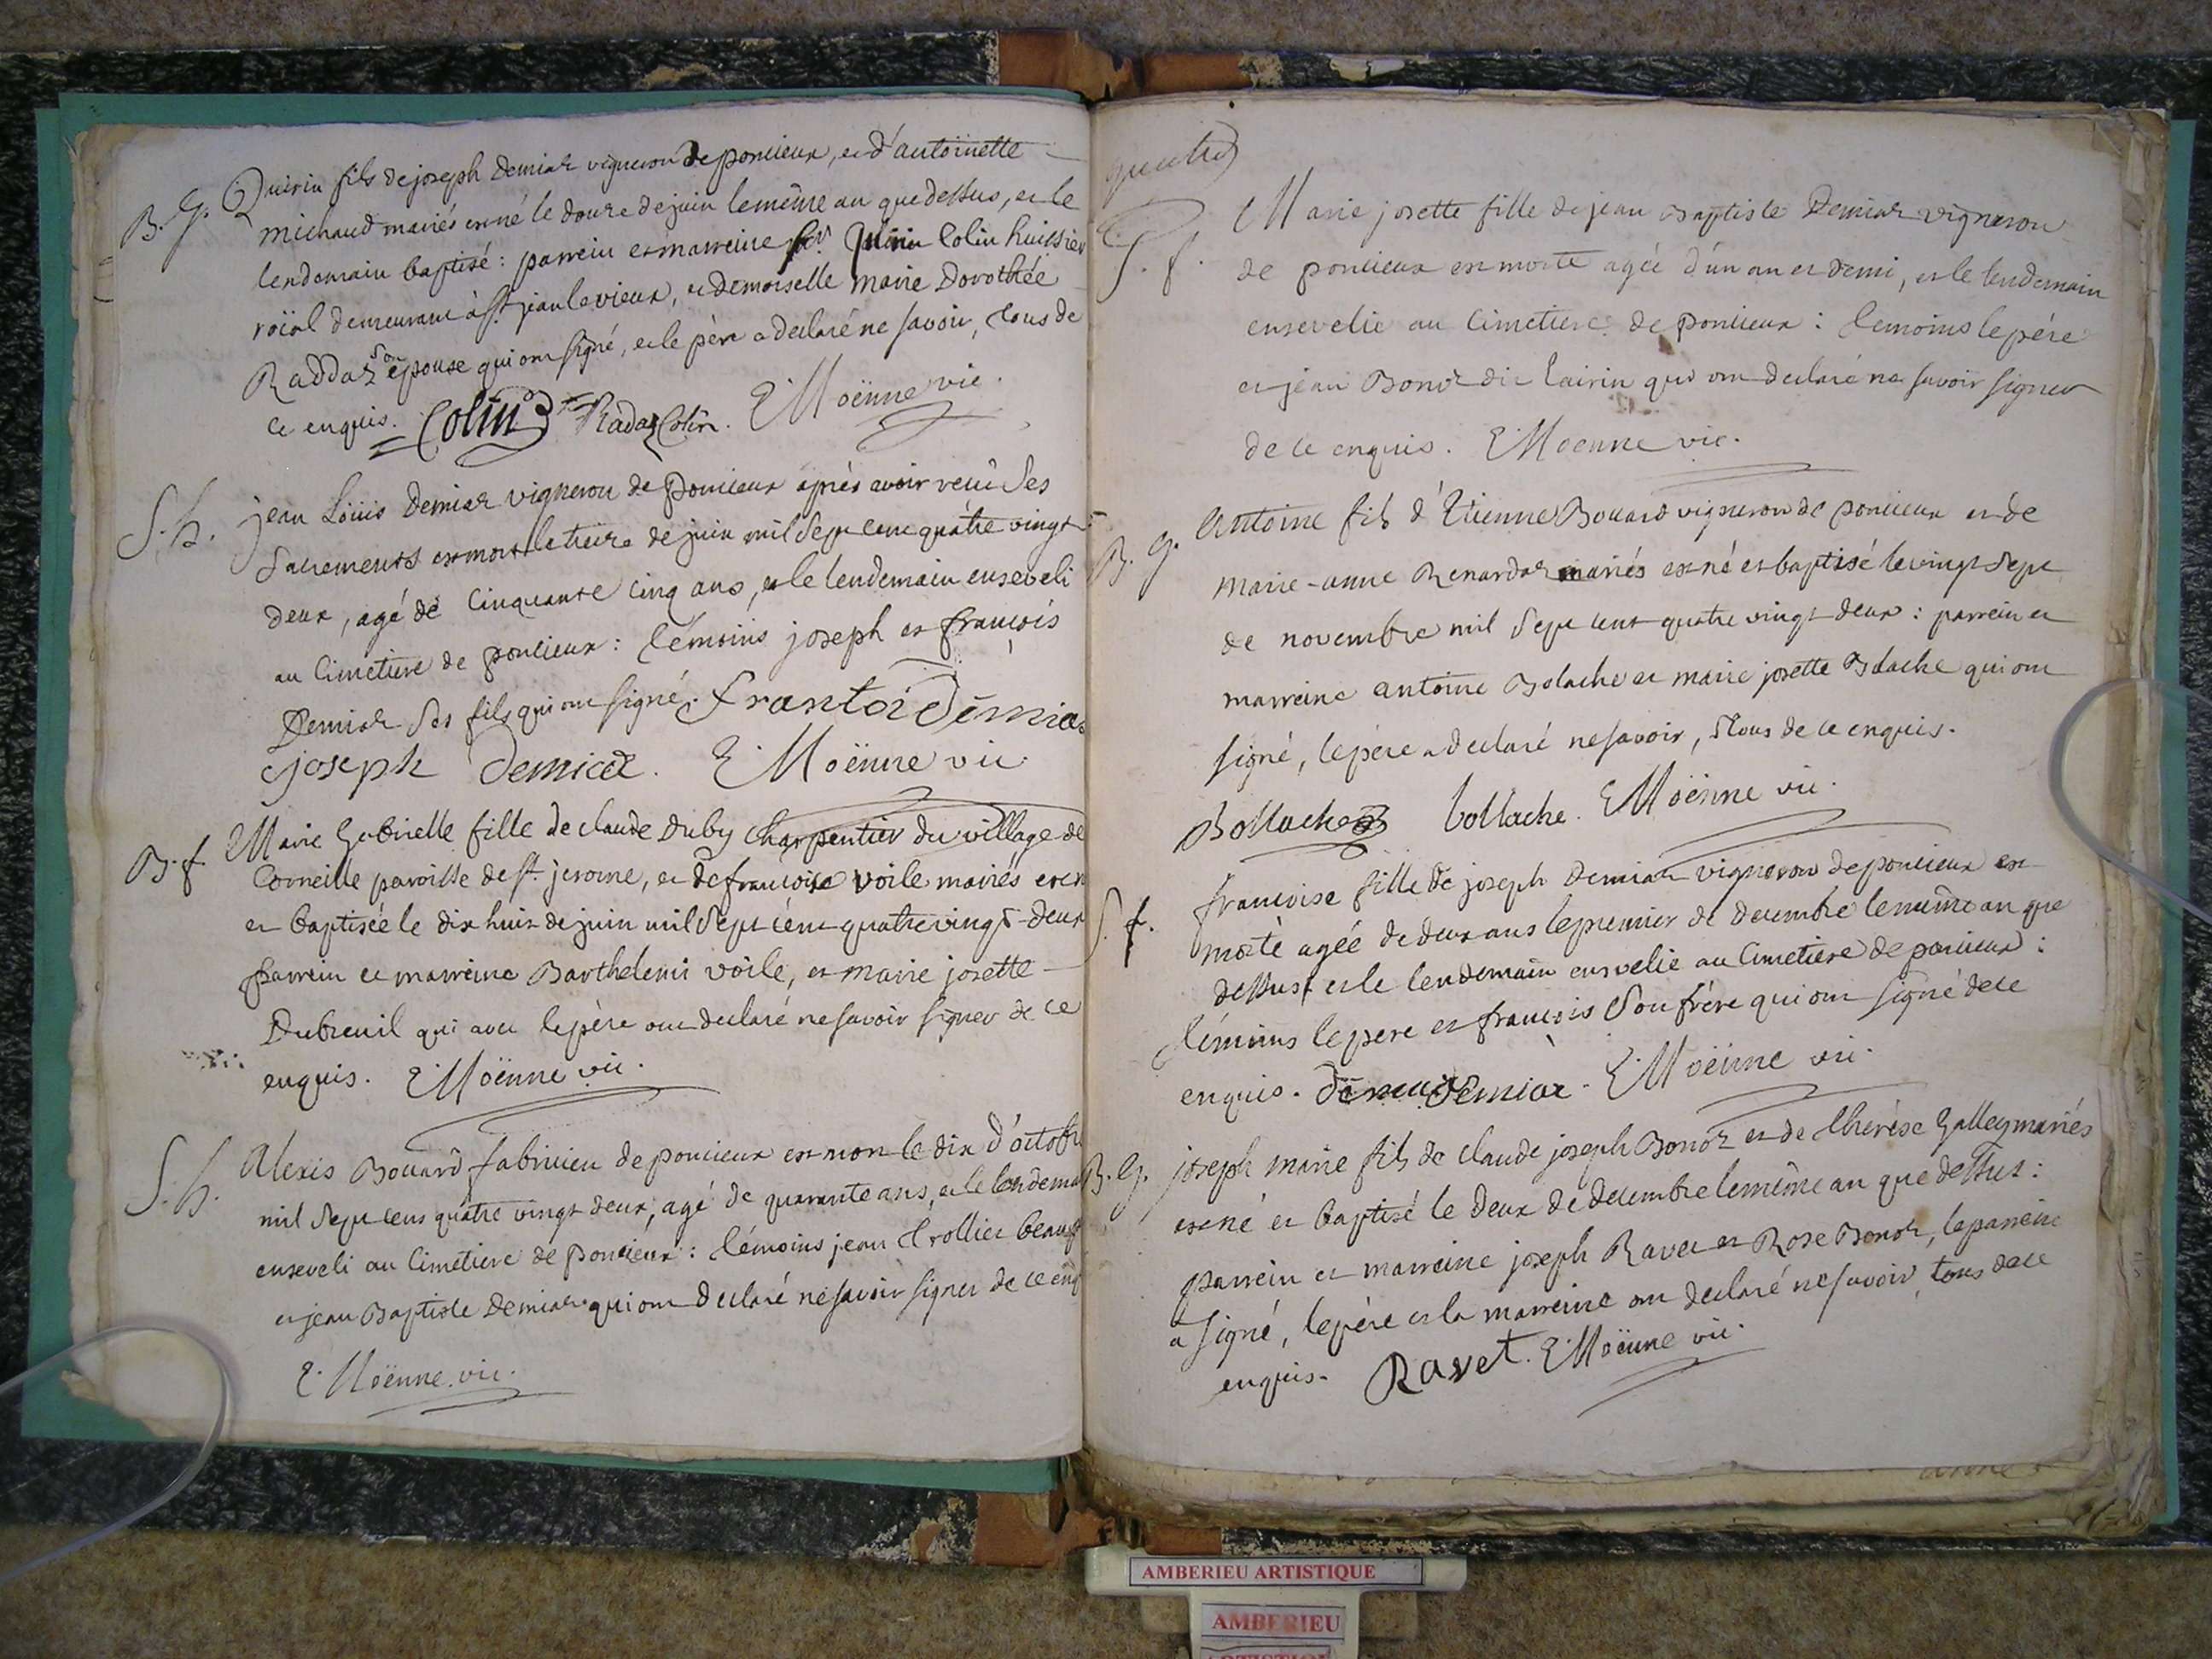 B. G. Quirin fils de joseph Demiaz vigneron de poncieux, et d'antoinette
michaud mariés est né le douze de juin le même an que dessus, et le
lendemain baptisé : parrein et marreine sr. Quirin Colin huissier
roïal demeurant à st. jean le vieux, et demoiselle marie Dorothée
Raddaz son epouse qui ont signé, et le père a declaré ne savoir, tous de
ce enquis. Colin Radaz Colin. E Moënne vic.
S. h. jean Loüis Demiaz vigneron de Poncieux après avoir recû ses
sacrements est mort le treize de juin mil sept cent quatre vingt
deux, agé de cinquante cinq ans, et le lendemain enseveli
au cimetiere de poncieux : témoins joseph et françois
Demiaz ses fils qui ont signé. frantoi Demiaz
joseph Demiaz. E Moënne vic.
B. f. Marie Gabrielle fille de claude Duby charpentier du village de
Corneille paroisse de st. jerome, et de francoise voile mariés est n
et baptisée le dix huit de juin mil sept cent quatre vingt-deux
parrein et marreine Barthelemi voile, et marie josette
Dubreuil qui avec le père ont declaré ne savoir signer de ce
enquis. E Moënne vic.
S. h. Alexis Bouard fabricien de poncieux est mort le dix d'octobr
mil sept cens quatre vingt deux, agé de quarante ans, et le lendema
enseveli au cimetiere de poncieux : témoins jean Trollier beauf
et jean Baptiste Demiaz qui ont declaré ne savoir signer de ce enq
E. Moënne. vic.
S. f. Marie josette fille de jean Baptiste Demiaz vigneron
de poncieux est morte agée d'un an et demi, et le lendemain
ensevelie au cimetiere de poncieux : témoins le pére
et jean Bonoz dit Cairin qui ont declaré ne savoir signer
de ce enquis. E Moenne vic.
B. g. Antoine fils d'Etienne Bouard vigneron de poncieux et de
marie-anne Renardaz mariés est né et baptisé le vingt sept
de novembre mil sept cent quatre vingt-deux : parrein et
marreine antoine Bolache et marie josette Bolache qui ont
signé, le père a declaré ne savoir, tous de ce enquis.
Bollache bollache. E Moënne vic.
S. f. francoise fille de joseph Demiaz vigneron de poncieux est
morte agée de deux ans le premier de decembre le même an que
dessus, et le lendemain ensvelie au cimetiere de poncieux :
témoins le pere et francois son frére qui ont signé de ce
enquis. Demiaz Demiaz. E Moënne vic.
B. G. joseph marie fils de claude joseph Bonoz et de thérèse Galley mariés
est né et baptisé le deux de decembre le même an que dessus :
parrein et marreine joseph Ravet et Rose Bonoz, le parrein
a signé, le père et la marreine ont declaré ne savoir, tous de ce
enquis. Ravet. E Moënne vic.
AMBERIEU ARTISTIQUE
AMBERIEU
ARTISTIQUE